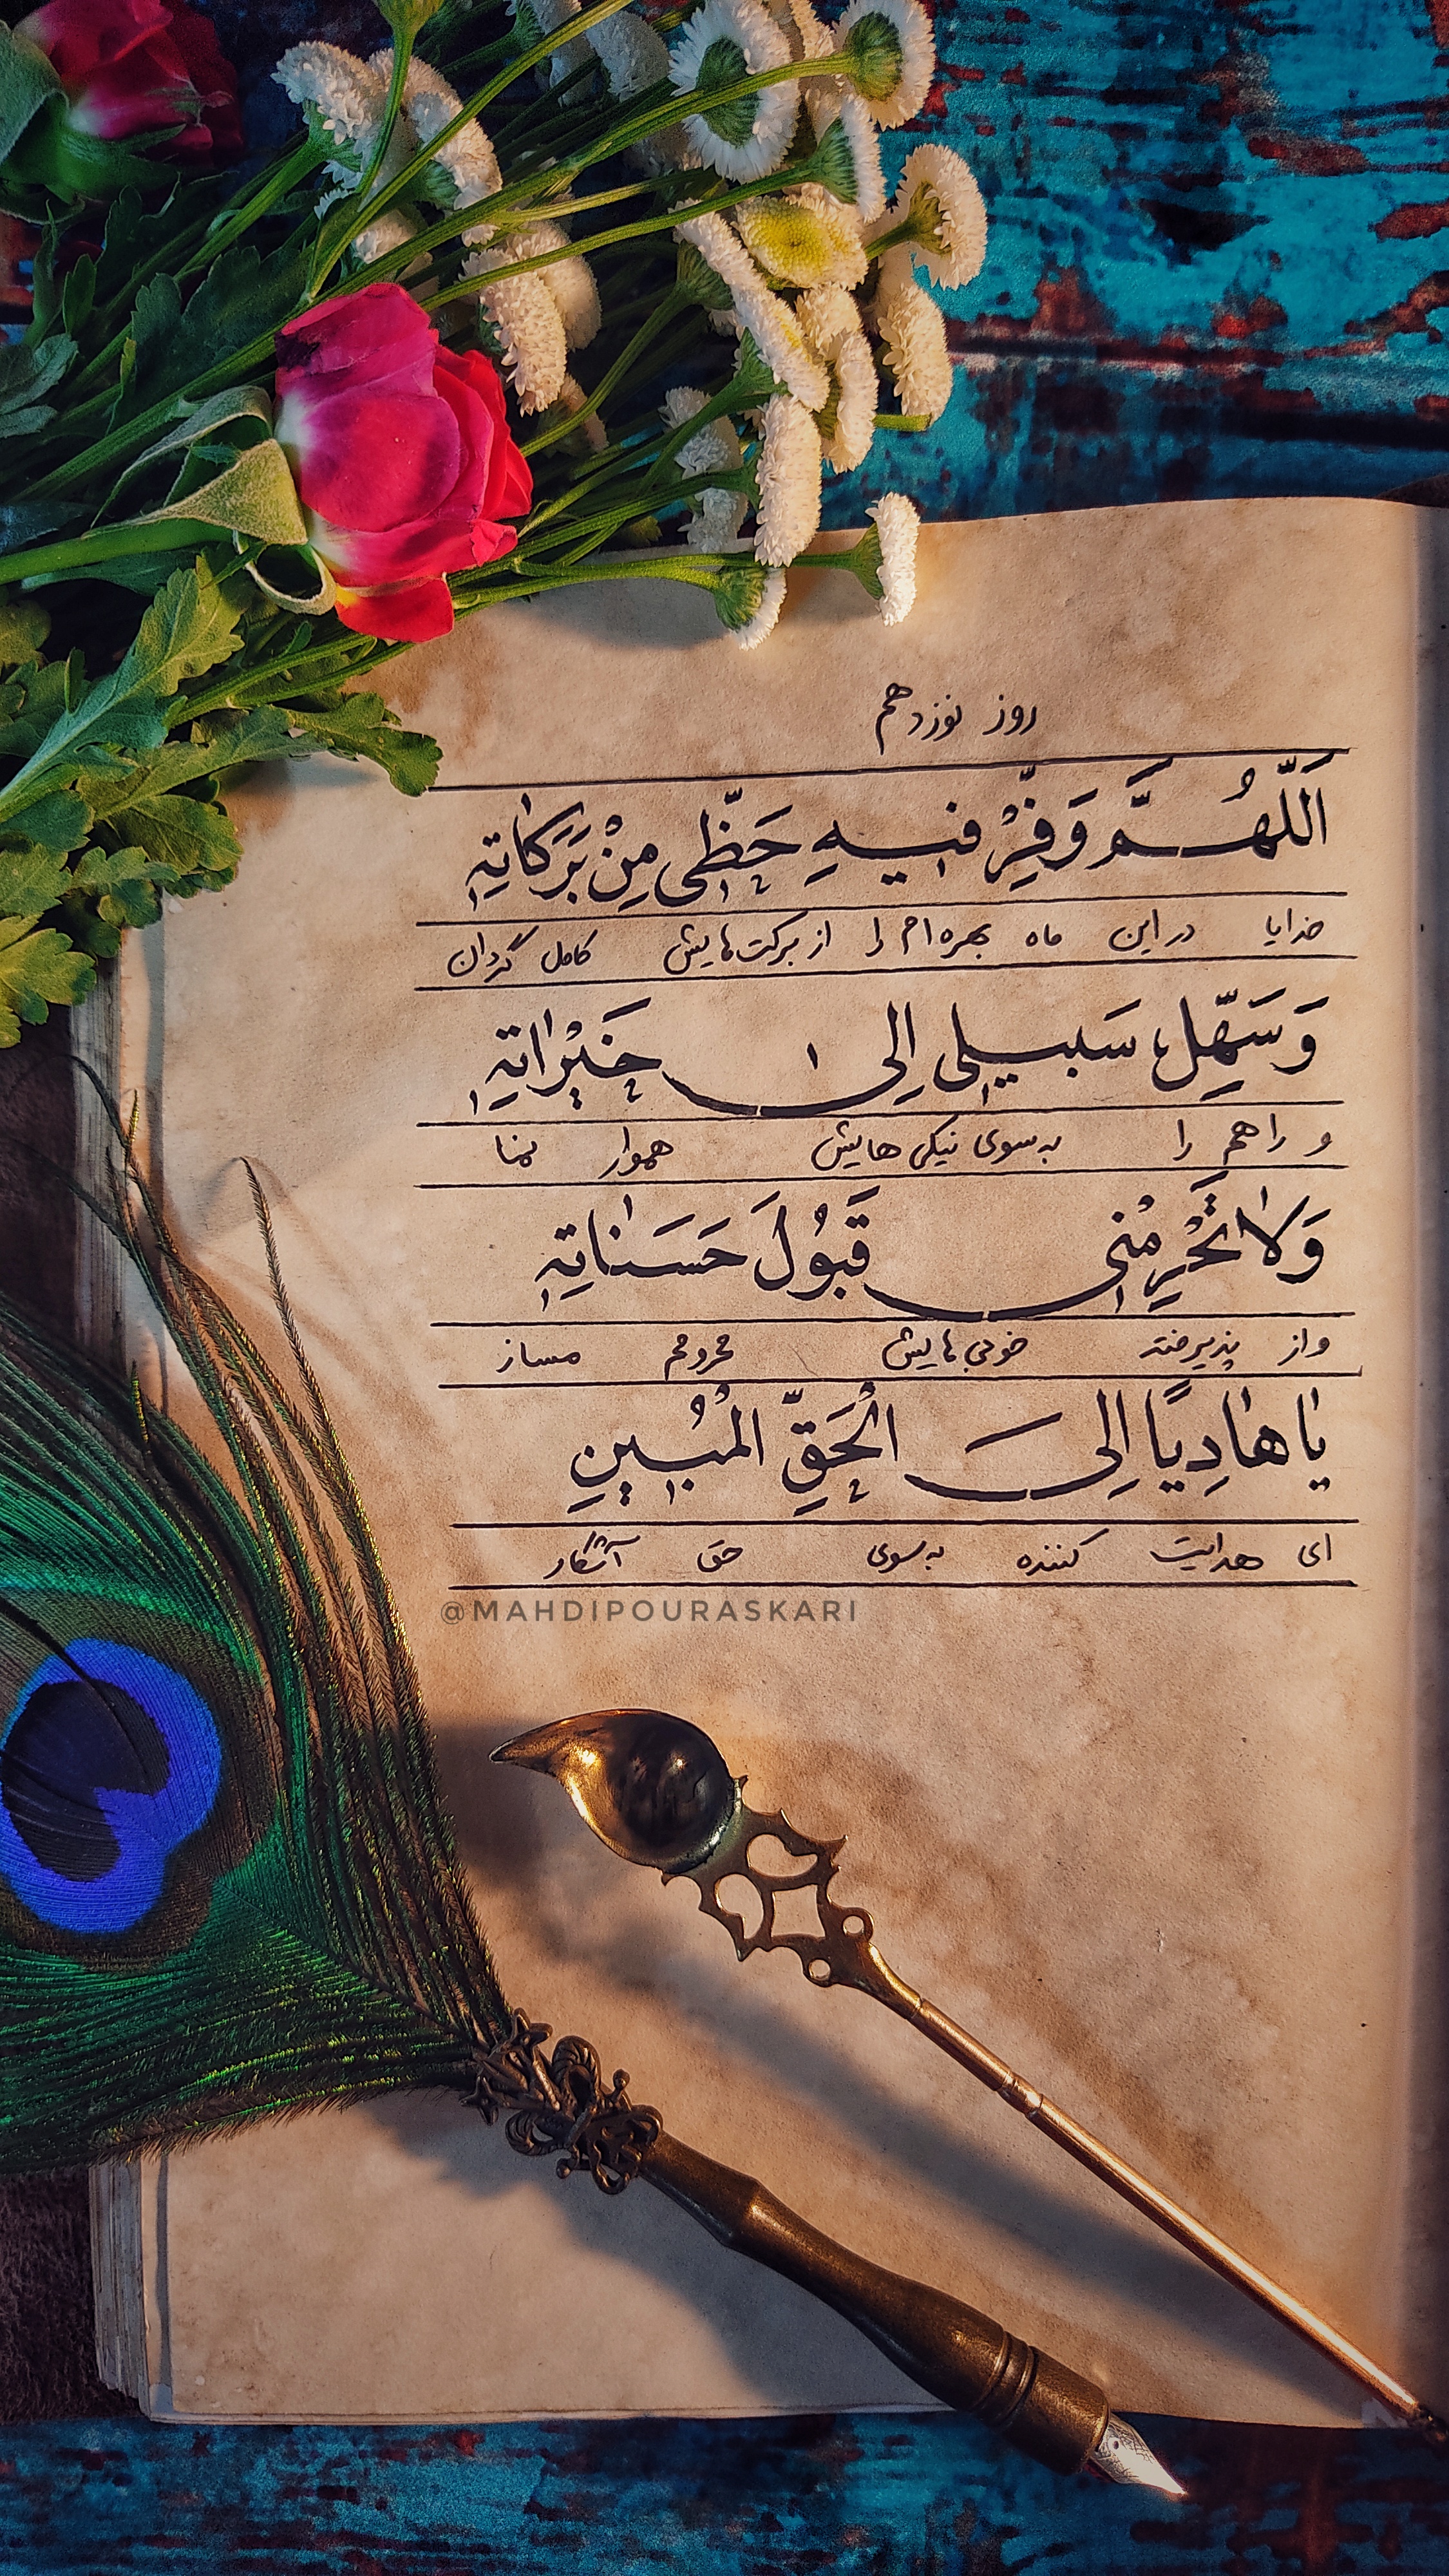 روز نوزدهم
اَللّهُمَّ وَفِّرْ فیهِ حَظّی مِنْ بَرَکاتِهِ
خدایا در این ماه بهره‌ام را از برکت‌هایش کامل گردان
وَ سَهِّلْ سَبیلی اِلی خَیْراتِهِ
و راهم را به‌سوی نیکی‌هایش هموار نما
وَلا تَحْرِمْنی قَبُولَ حَسَناتِهِ
و از پذیرفتن خوبی‌هایش محرومم مساز
یا هادِیًا اِلَی الْحَقِّ الْمُبینِ
ای هدایت کننده به‌سوی حق آشکار
@MAHDIPOURASKARI